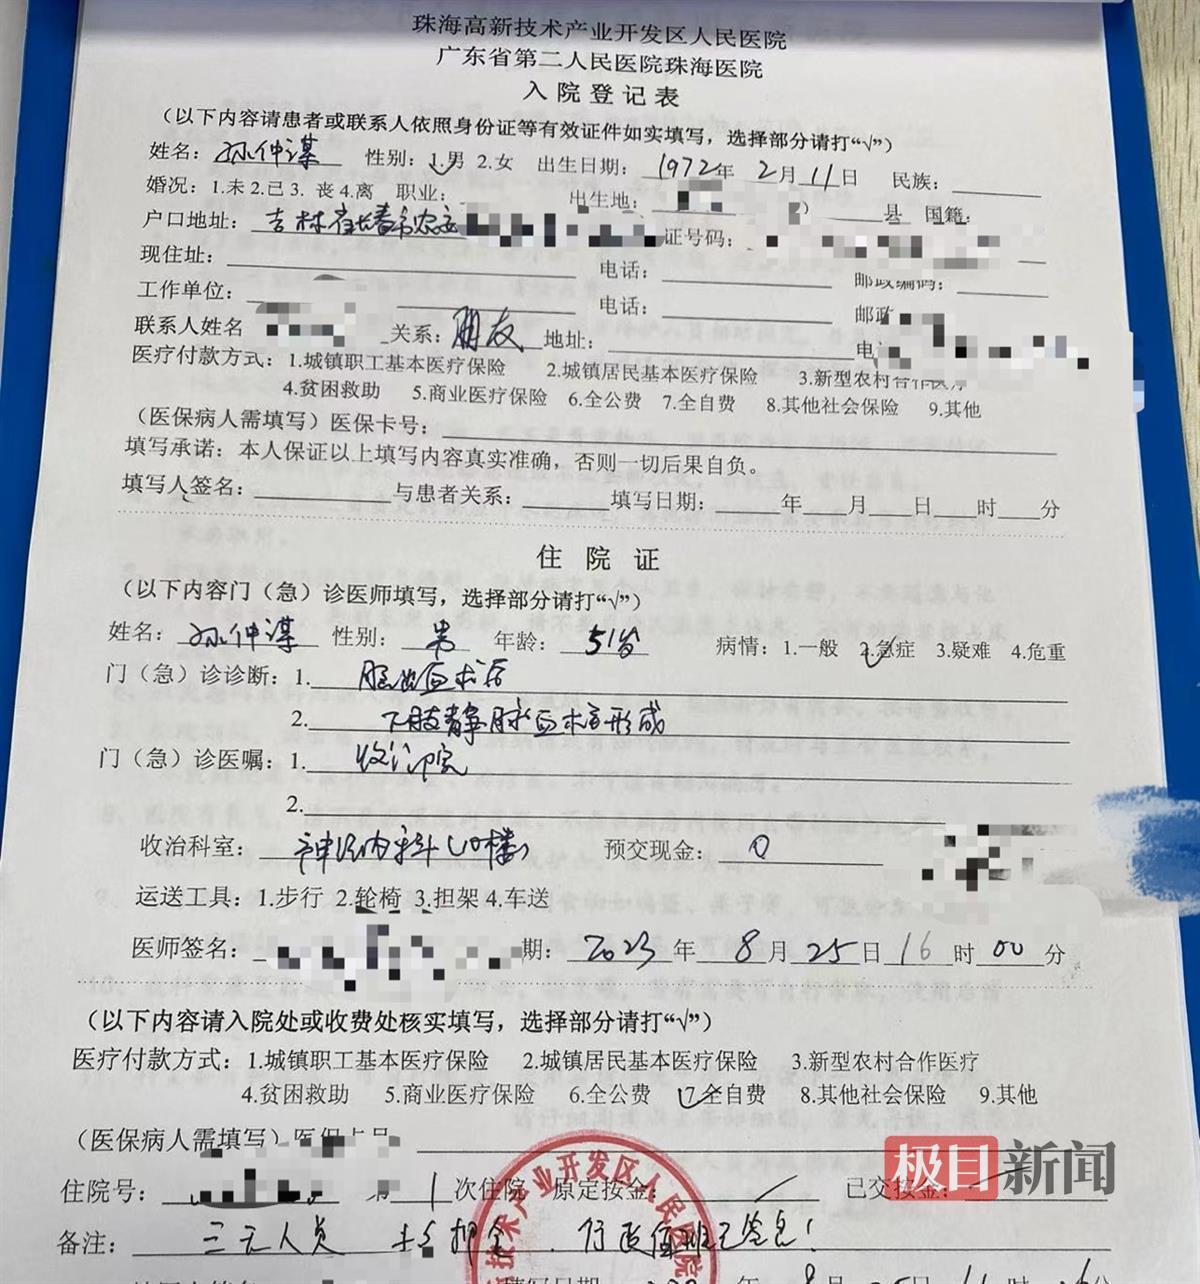 珠海高新技术产业开发区人民医院
广东省第二人民医院珠海医院
入院登记表
（以下内容请患者或联系人依照身份证等有效证件如实填写，选择部分请打“√”）
姓名：孙仲谋 性别：1.男 2.女 出生日期：1972年 2月 11日 民族：
婚况：1.未 2.已 3. 丧 4.离 职业： 出生地： 县 国籍：
户口地址：吉林省长春市农安 证号码：
现住址： 电话： 邮政编码：
工作单位： 电话： 邮政
联系人姓名 关系：朋友 地址： 电
医疗付款方式：1.城镇职工基本医疗保险 2.城镇居民基本医疗保险 3.新型农村合作医疗
4.贫困救助 5.商业医疗保险 6.全公费 7.全自费 8.其他社会保险 9.其他
（医保病人需填写）医保卡号：
填写承诺：本人保证以上填写内容真实准确，否则一切后果自负。
填写人签名： 与患者关系： 填写日期： 年 月 日 时 分
住 院 证
（以下内容门（急）诊医师填写，选择部分请打“√”）
姓名：孙仲谋 性别：男 年龄：51岁 病情：1.一般 2.急症 3.疑难 4.危重
门（急）诊诊断：1. 脑出血术后
2. 下肢静脉血栓形成
门（急）诊医嘱：1. 收入院
2.
收治科室：神经内科（10楼） 预交现金：0
运送工具：1.步行 2.轮椅 3.担架 4.车送
医师签名： 期：2023 年 8 月 25 日 16 时 00 分
（以下内容请入院处或收费处核实填写，选择部分请打“√”）
医疗付款方式：1.城镇职工基本医疗保险 2.城镇居民基本医疗保险 3.新型农村合作医疗
4.贫困救助 5.商业医疗保险 6.全公费 7.全自费 8.其他社会保险 9.其他
（医保病人需填写）医保卡号
住院号： 第 1 次住院 原定按金： 已交按金：
备注：三无人员 押金，行政值班已签息！
填写日期 年 8 月 25 日 时 分
技术产业开发区人民医院
极目新闻